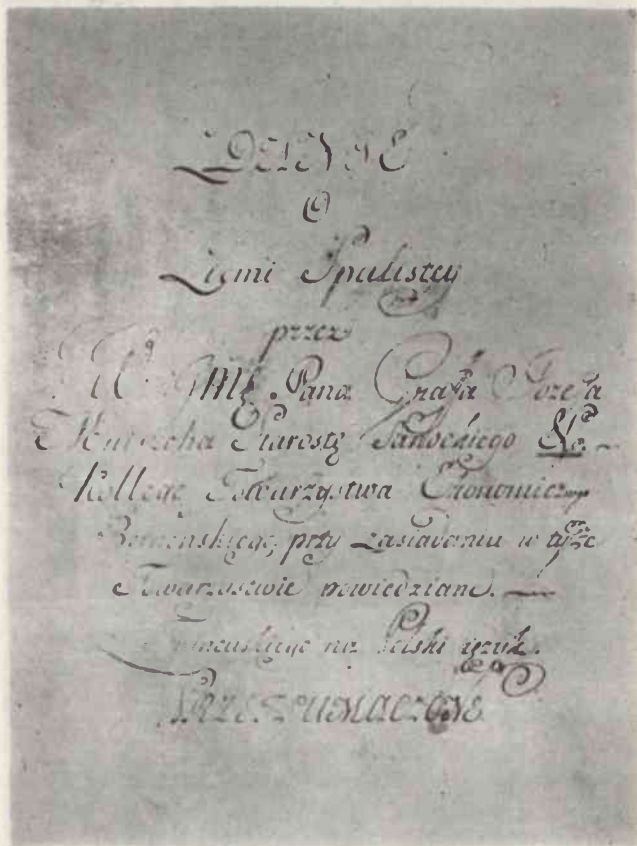 ZDANIE
O
Ziemi Spalistey
przez
W. JMĆ Pana Grafa Jozefa
Mniszcha Starostę Sanockiego &c.
Kollegę Towarzystwa Ekonomiczn
Bernenskiego, przy zasiadaniu w tyże
Towarzystwie powiedziane. —
Francuskiego na Polski ięzyk.
PRZETŁUMACZONE